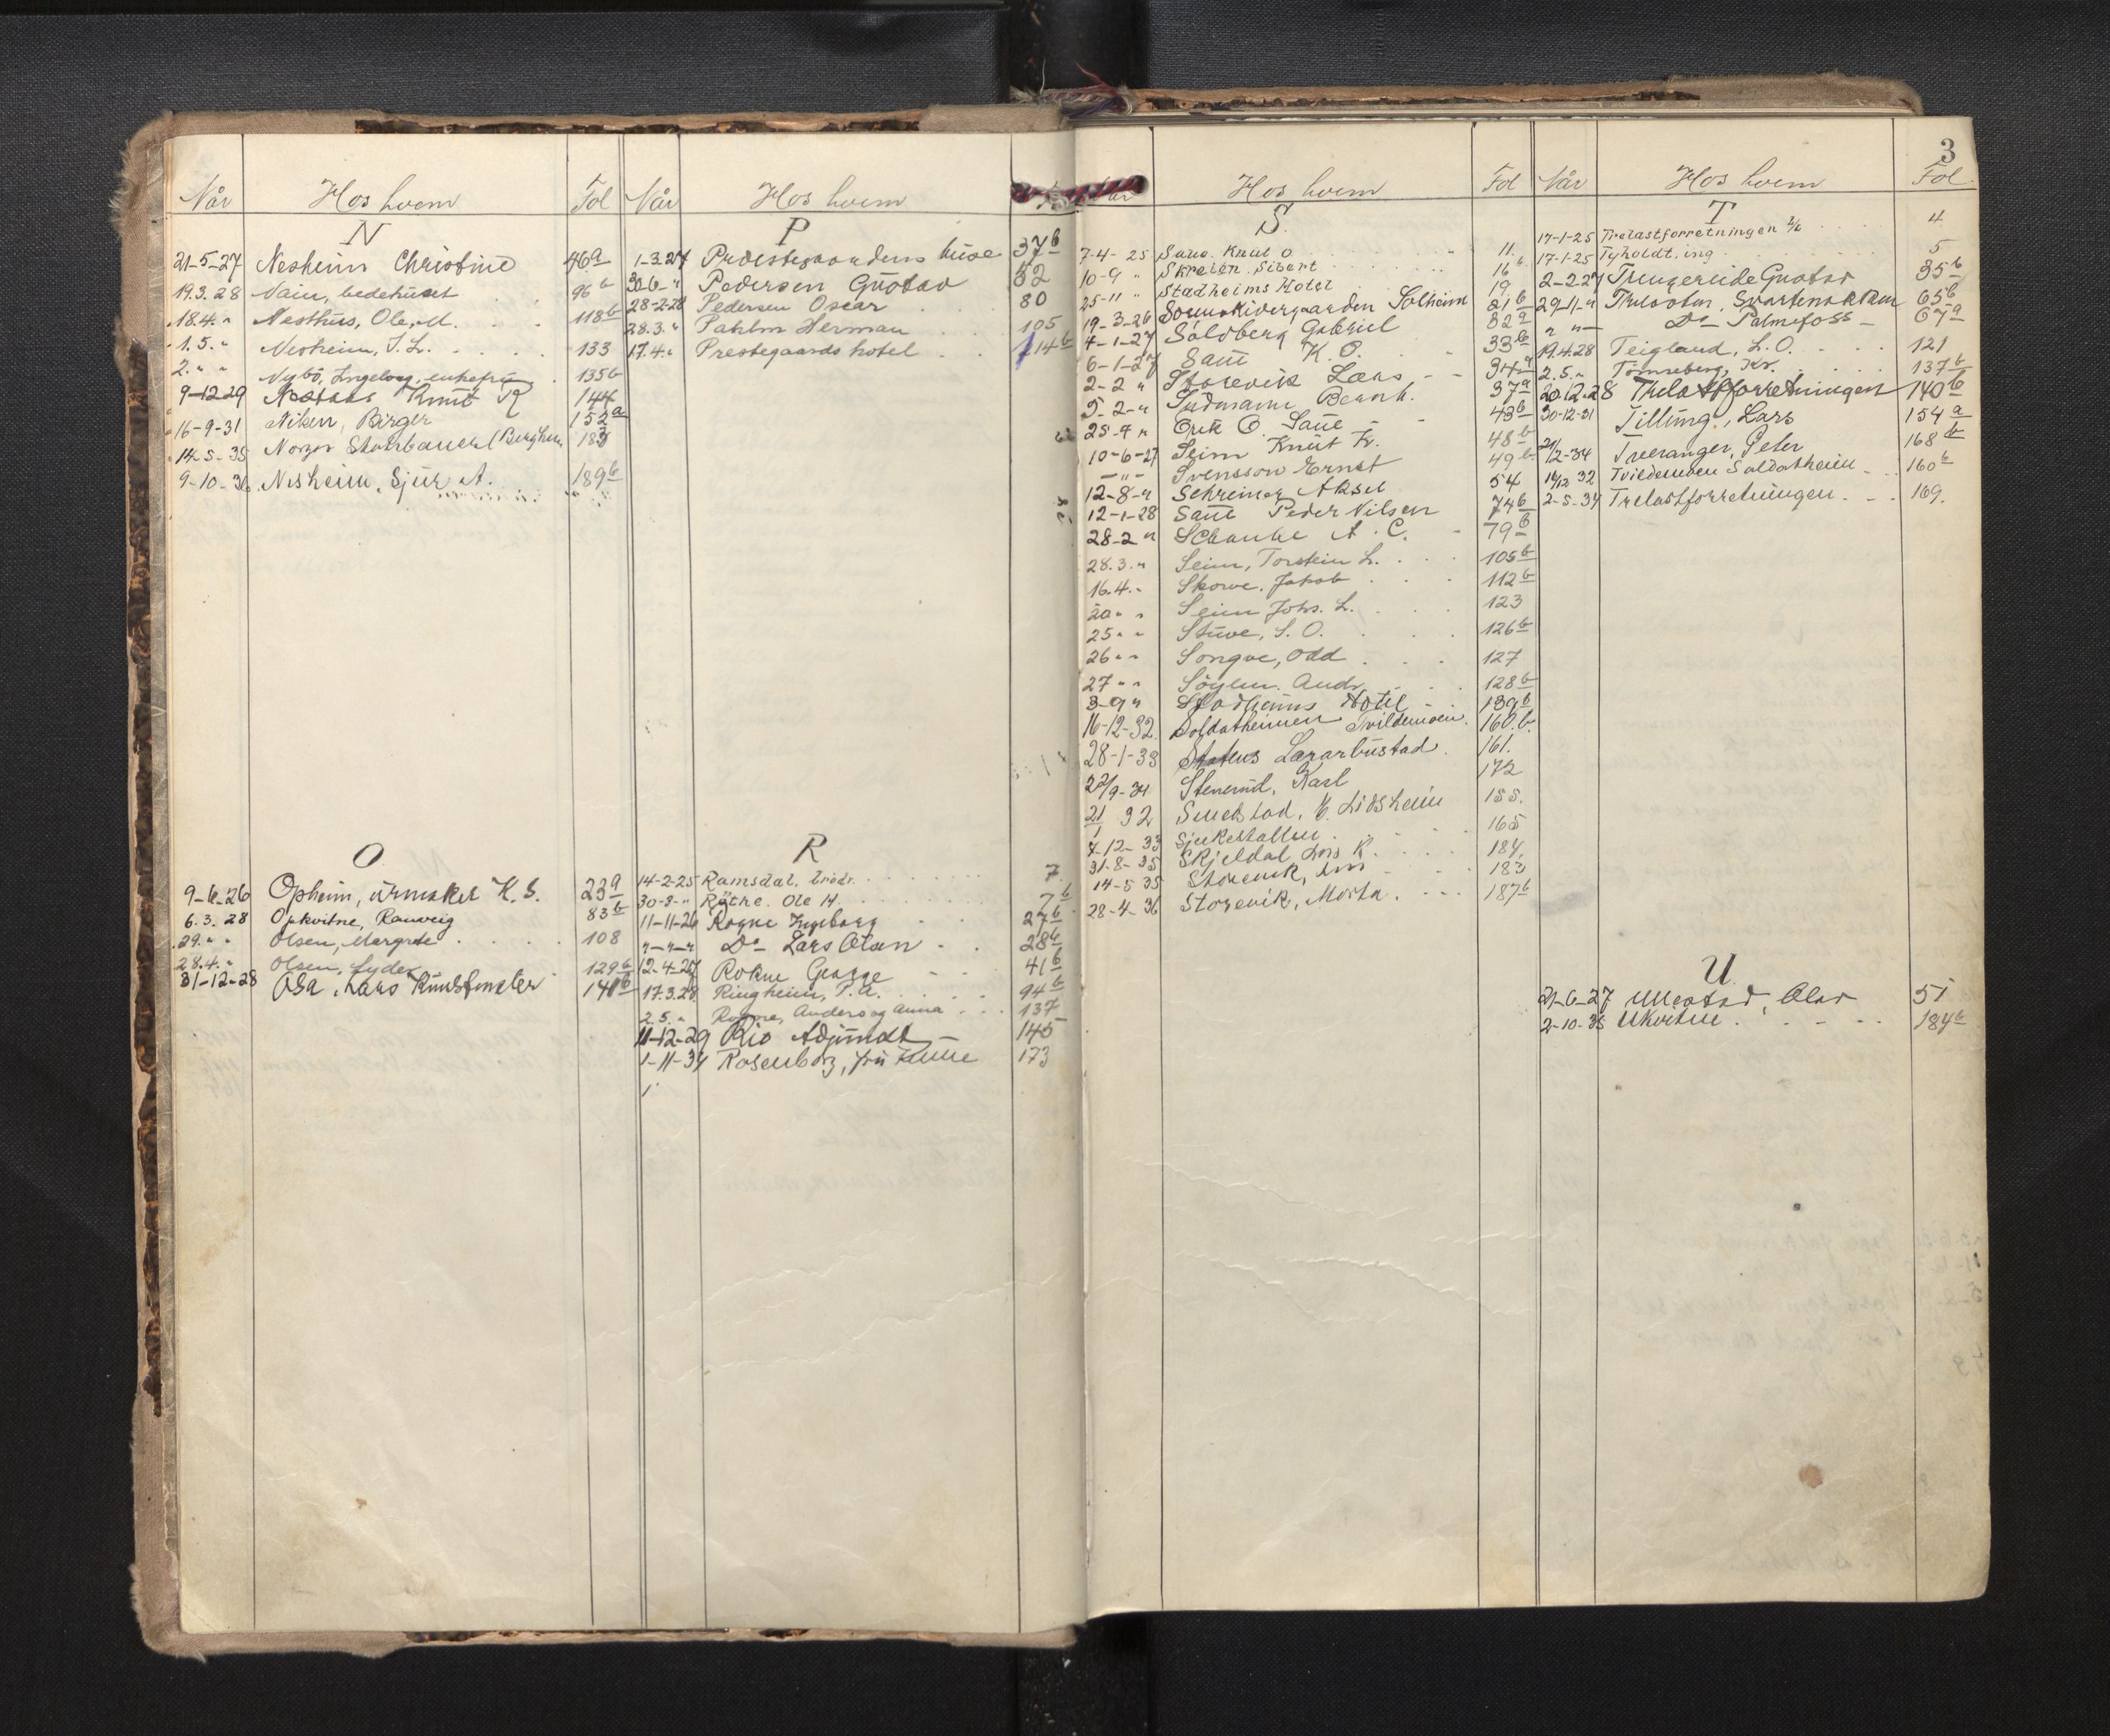 Når Hos hvem Fol
N
21-5-27 Nesheim Christine 46a
19.3.28 Vain, bedehuset 96b
18.4. " Nesthus, Ole M. 118b
1.5. " Nesheim, S. L. 133
2. " " Nybö, Ingeborg, enkefru 135b
9-12-29 Knut K 144
16-9-31 Birger 152a
14-5-35 Norges (Bergheim 183
9-10-36 Nesheim, Sjur A. 189b
O
9-6-26 Opheim, urmaker K. S. 23a
6.3.28 Opkvitne, Ranveig 83b
29. " " Olsen, Margrete 108
28.4. " Olsen, Lyder 129b
31-12-28 Osa, Lars Kunstmaler 141b
Når Hos hvem
P
1-3-27 Prestegaardens 37b
30-6- " Pedersen Gustav 52
28-2-28 Pedersen Oscar 80
28.3. " Herman 105
17.4. " Prestegaards hotel 114b
R
14-2-25 Ramsdal, brødr. 7.
30-8- " Røthe. Ole H. 7b
11-11-26 Rogne Ingeborg 27b
"-"-" Do Lars Olsen 28b
12-4-27 Rokne George 41b
17.3.28 Ringheim, P. A. 94b
2.5. " Rogne, Anders og Anna 137
11-12-29 Rio Adjunkt 145
1-11-34 Rosenborg, fru 173
3
Hos hvem Fol
S.
7-4-25 Saue. Knut O 11.
10-9 " Skreien. Sivert 16b
25-11 " Stadheims Hotel 19
19-3-26 Solheim 21b
4-1-27 Soldberg Gabriel 32a
6-1-27 Saue K. O. 33b
2-2 " Storevik Lars 34a
5-2- " 37a
25-4 " Erik O. Saue 43b
10-6-27 Seim Knut Tr. 48b
-"- Svensson Ernst 49b
12-8- " Schreiner Aksel 54
12-1-28 Saue Peder Nilsen 74b
28-2 " A. C. 79b
28.3. " Seim, Torstein L. 105b
16.4. " Skorve, Jakob 112b
20 " " Seim Johs. L. 123
25 " " Stuve, S. O. 126b
26 " " Songve, Odd 127
27 " " Andr. 128b
3-9 " Stadheims Hotel 139b
16-12-32 Soldatheimen Tvildemoen. 160.b
28-1-33 Statens Lærarbustad. 161.
22/9-34 Stenerud, Karl 172
21/1 32 155.
7-12-33 Sjukestallen 165
31-8-35 Skjeldal Lars K. 184.
14-5 35 Storevik, 183
28-4-36 Storevik, Marta 187b
Når Hos hvem Fol.
T
17-1-25 Trelastforretningen 4
17-1-25 Tyholdt. ing 5
2-2-27 Gustav 35b
29-11- " 65b
" "- Do Palmafoss 67a
19.4.28 Teigland, L. O. 121
2.5. " Tömseberg, Kr. 137b
20-12-28 Trelastforretningen 140b
30-12-31 Tillung, Lars 154a
21/2-34 Tveranger, Peter 168b
16/12 32 Tvildemoen Soldatheim 160b
2-5-34 Trelastforretningen. 169.
U
21-6-27 Ullestad, Olav 51
2-10-35 Ukvitne 184b